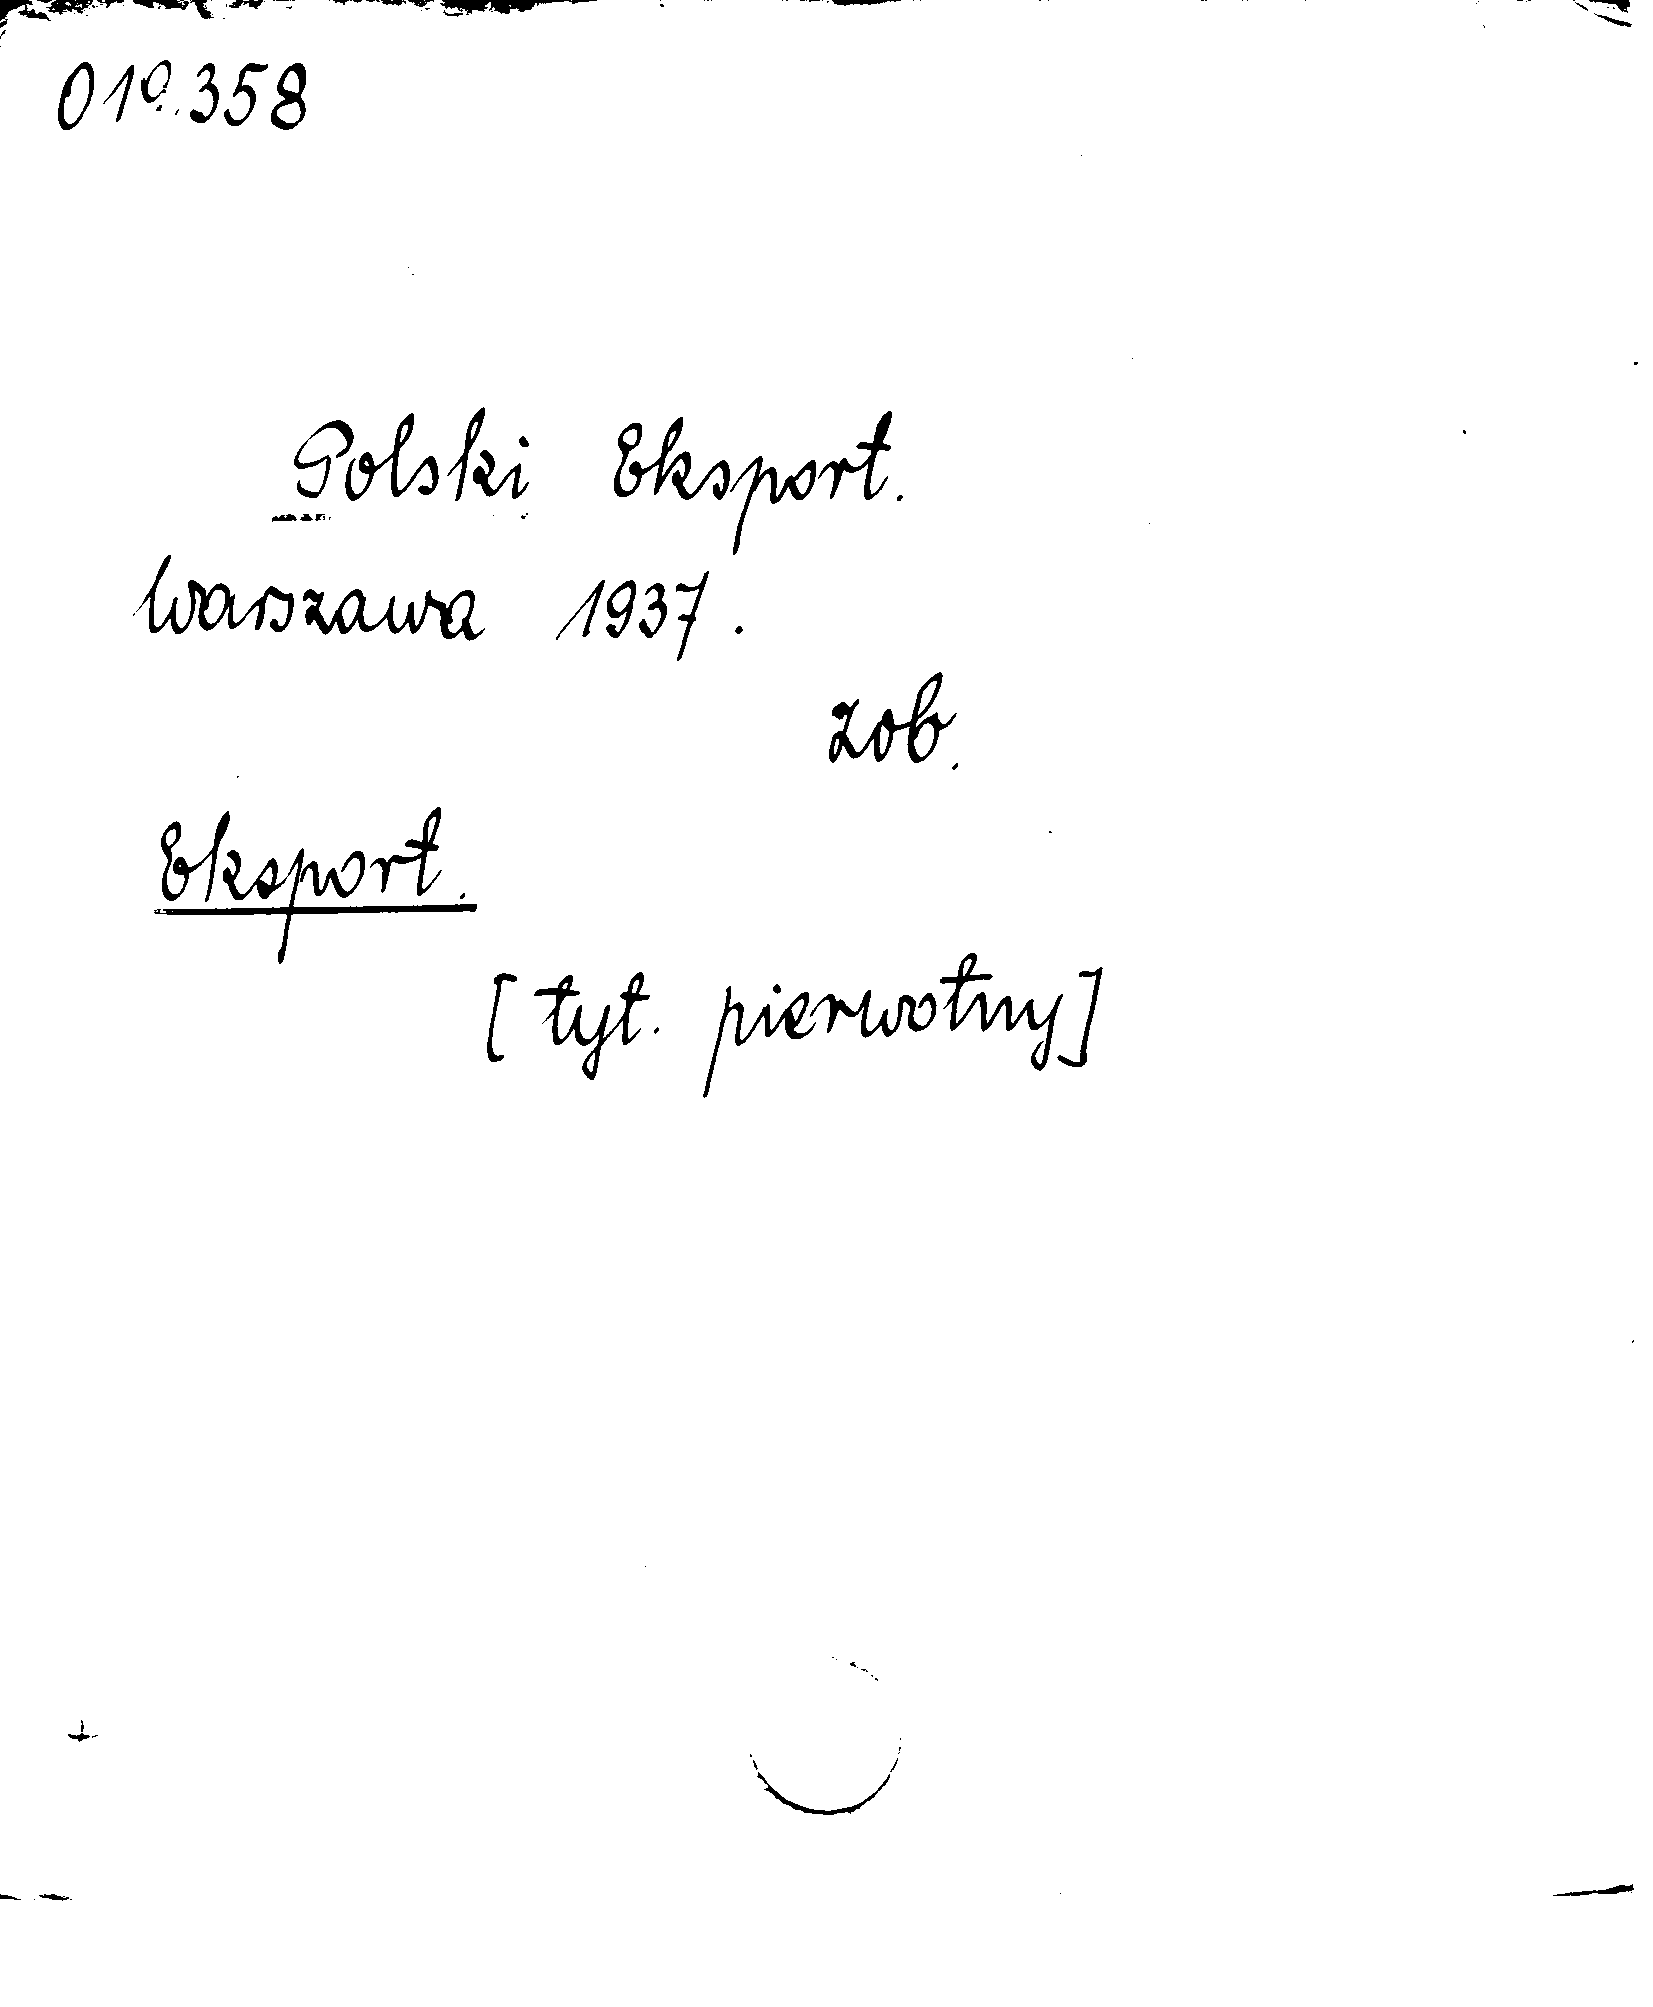 010.358
Polski Eksport.
Warszawa 1937.
zob.
Eksport.
[tyt. pierwotny]